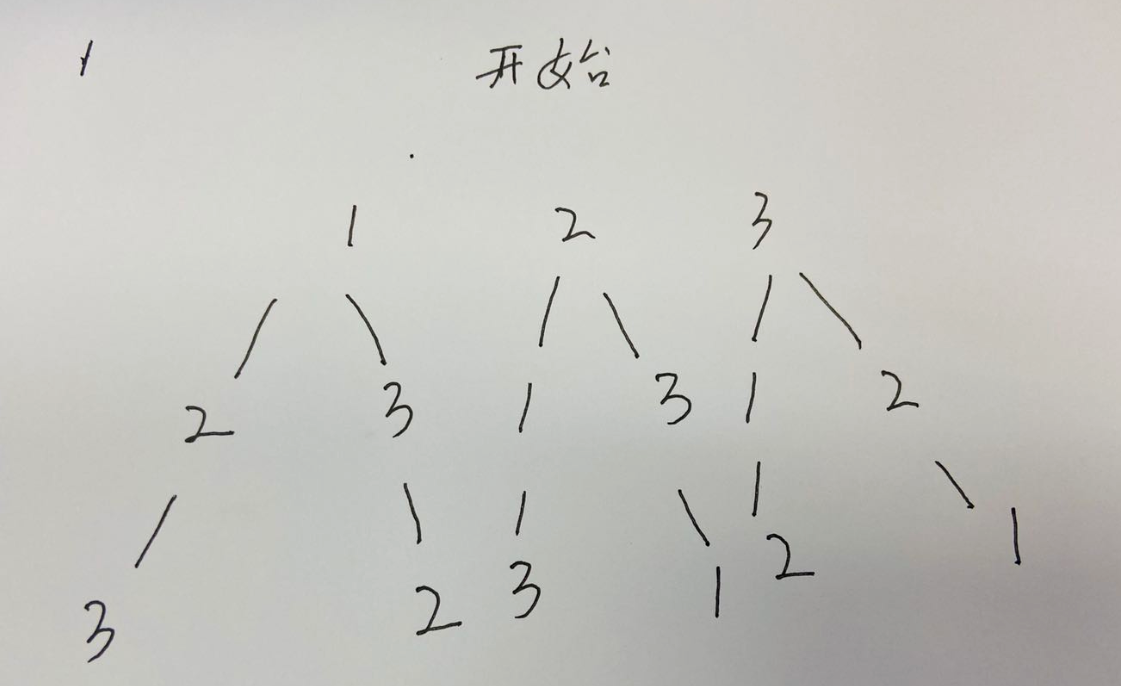 开始
1 2 3
2 3 1 3 1 2
3 2 3 1 2 1